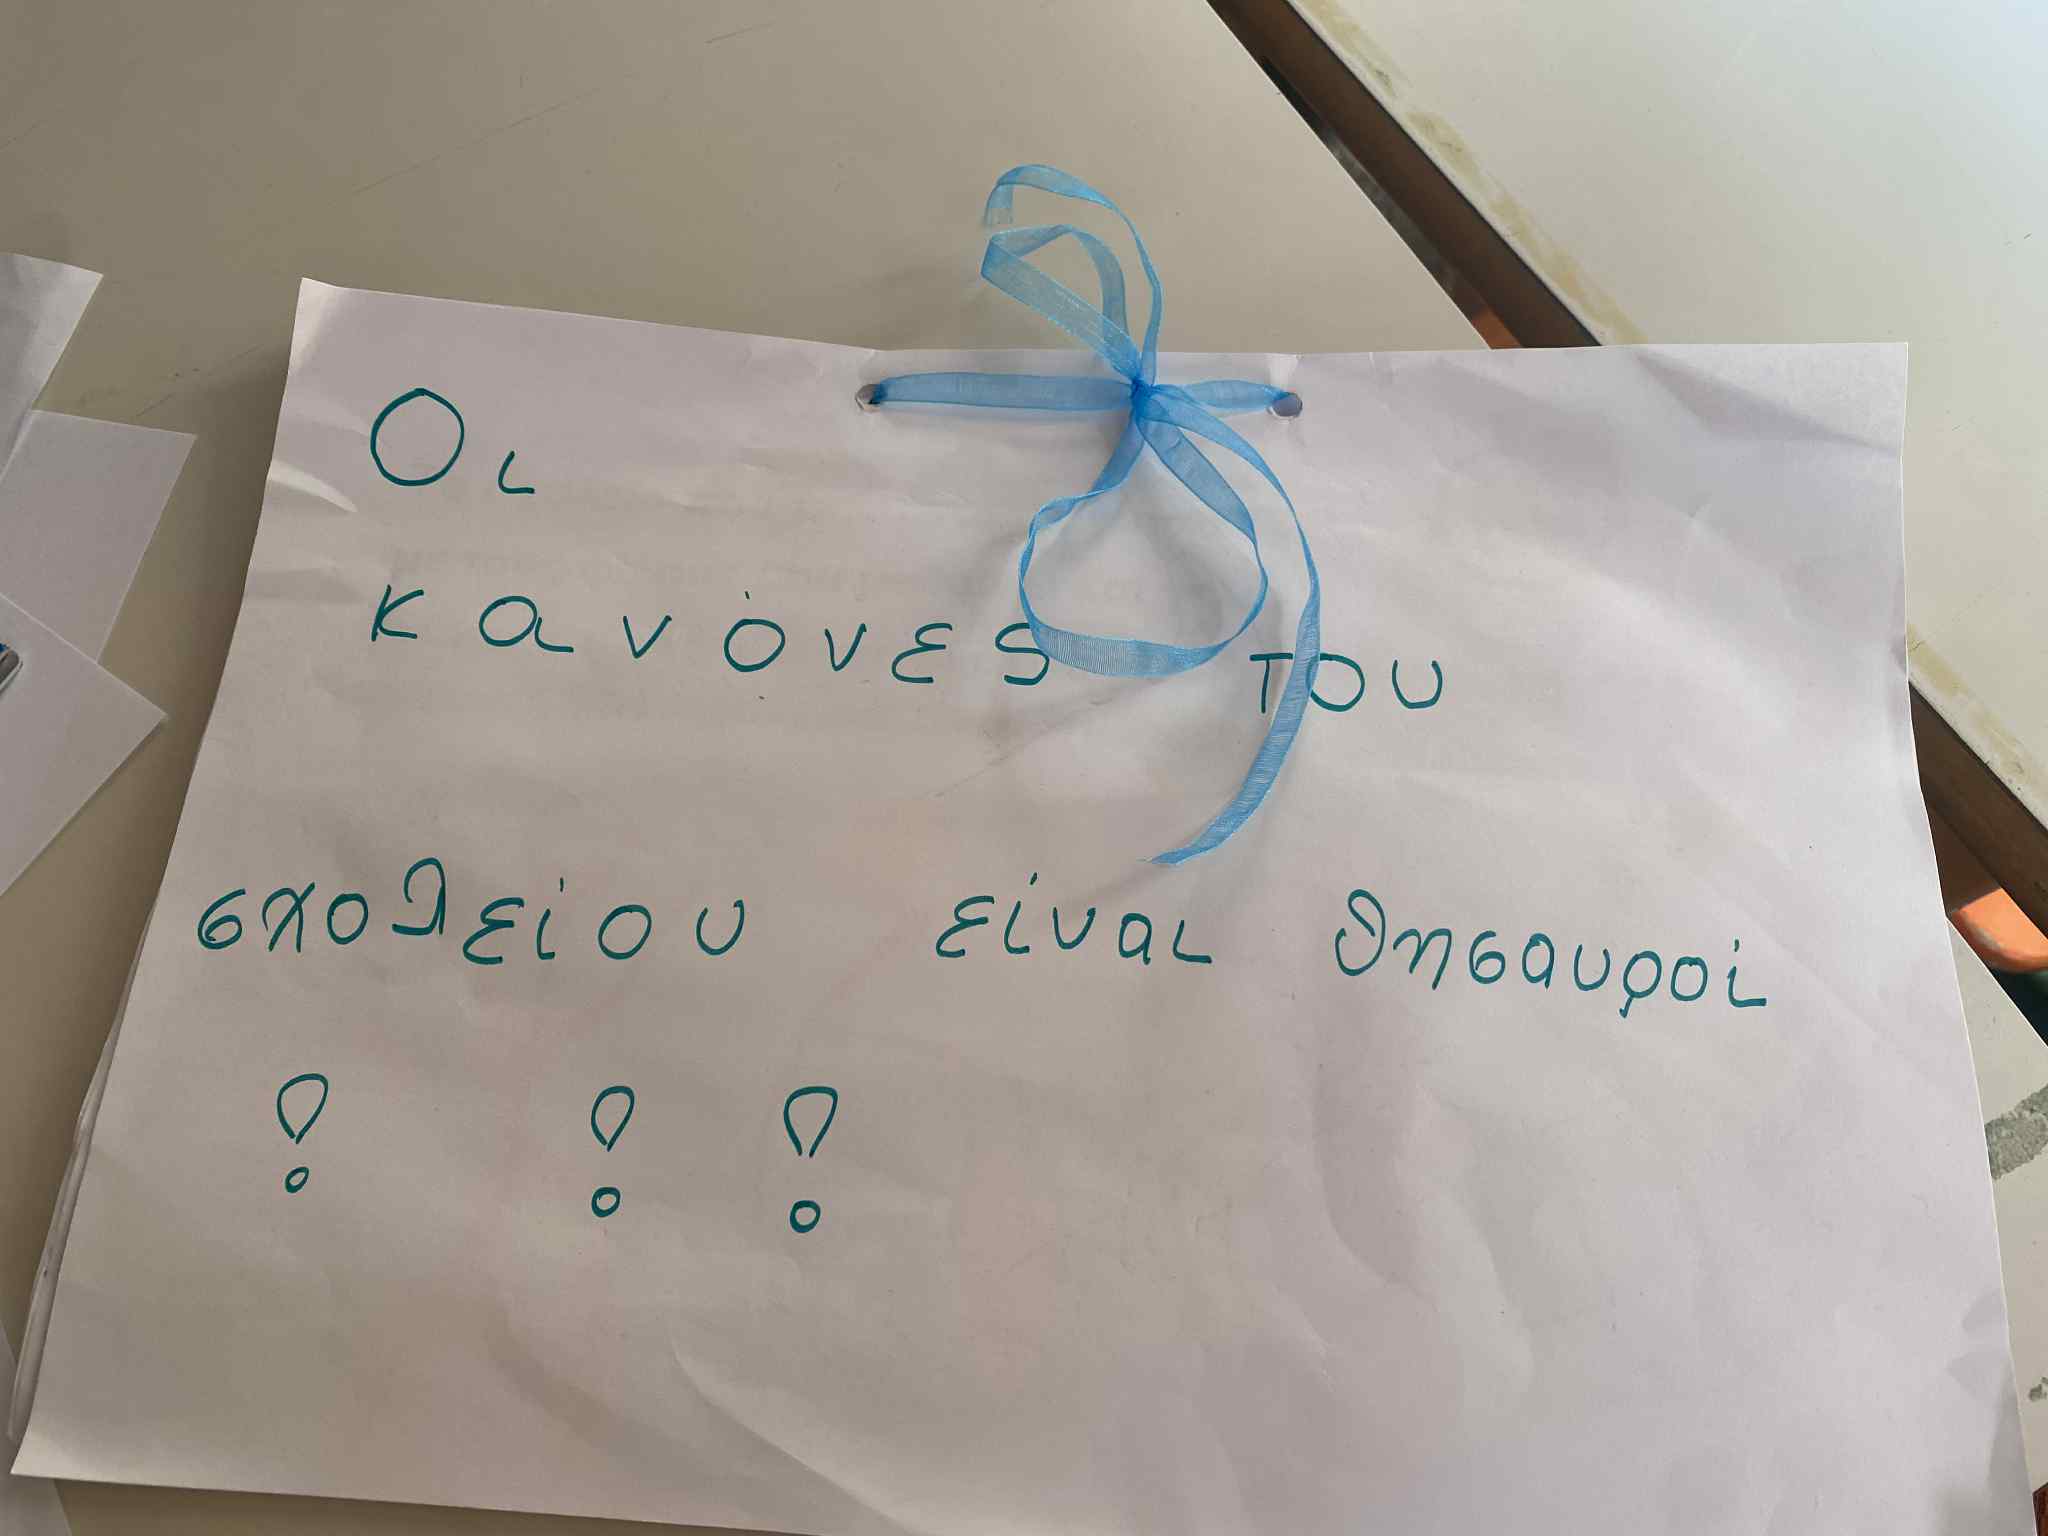 Οι
κανόνες του
σχολείου είναι θησαυροί
! ! !